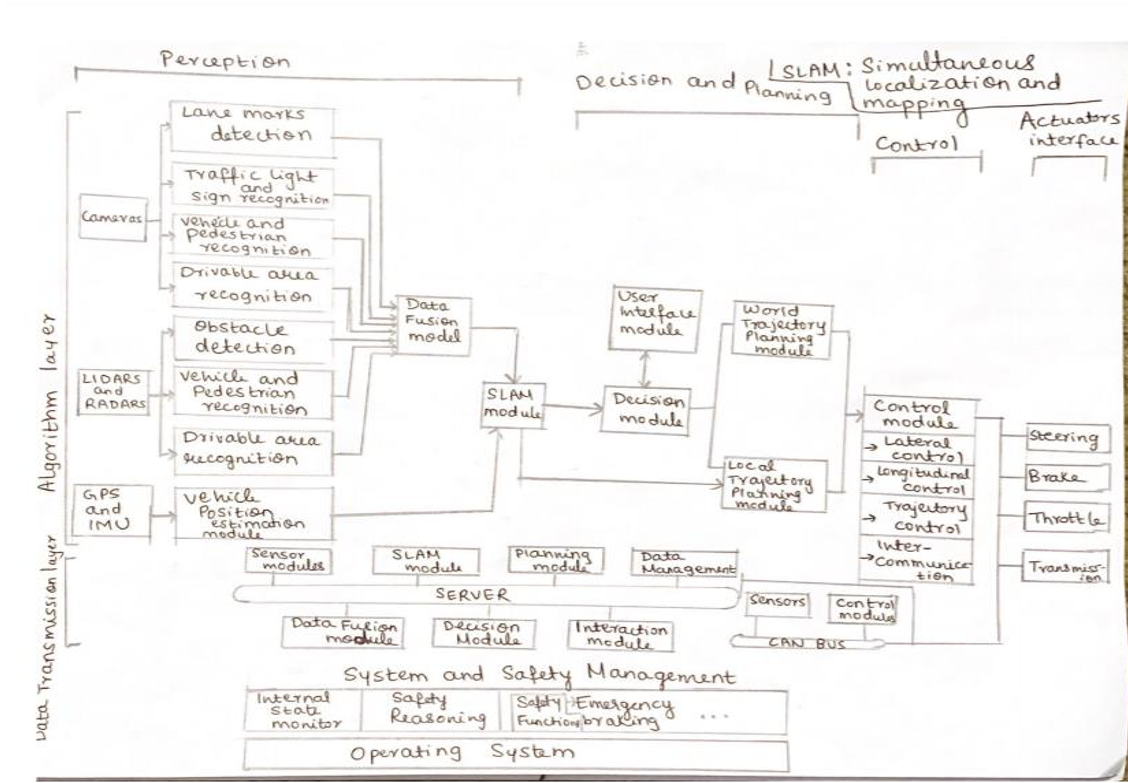 Perception
Decision and
Planning
SLAM: Simultaneous
localization and
mapping
Control
Actuators
interface
Algorithm layer
Cameras
Lane marks
detection
Traffic light
and
sign recognition
vehicle and
Pedestrian
recognition
Drivable area
recognition
LIDARS
and
RADARS
Obstacle
detection
vehicle and
Pedestrian
recognition
Drivable area
recognition
GPS
and
IMU
vehicle
Position
estimation
module
Data
Fusion
model
SLAM
module
User
Interface
module
Decision
module
World
Trajectory
Planning
module
Local
Trajectory
Planning
module
Control
module
→ Lateral
control
→ Longitudinal
control
→ Trajectory
control
→ Inter-
communica-
tion
Steering
Brake
Throttle
Transmiss-
ion
Data Transmission layer
Sensor
modules
SLAM
module
Planning
module
Data
Management
SERVER
Data Fusion
module
Decision
Module
Interaction
module
Sensors
Control
modules
CAN BUS
System and Safety Management
Internal
State
monitor
Safety
Reasoning
Safety
Functions
Emergency
braking
...
Operating System